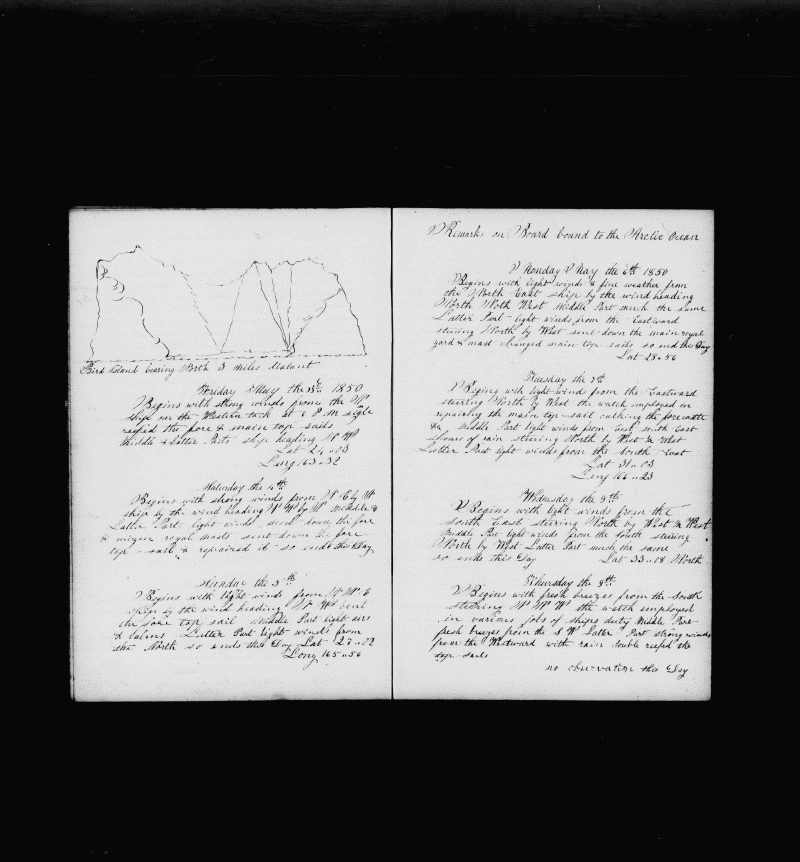 Bird Island bearing North 3 miles distant
Friday May the 3d 1850
Begins with strong winds from the N
ship on the Western tack at 6 P.M single
reefed the fore & main top sails
Middle & Latter Parts ship heading N W
Lat 24 " 03
Long 163 " 32
Saturday the 4th
Begins with strong winds from N E by N
ship by the wind heading N W by N Middle &
Latter Part light winds send down the fore
& mizen royal masts sent down the fore
top sail & repaired it so ends this Day
Sunday the 5th
Begins with light winds from N N E
ship by the wind heading N W bent
the fore top sail Middle Part light airs
& calms Latter Part light winds from
the North so ends this Day Lat 27 " 02
Long 165 " 56
Remarks on Board bound to the Arctic Ocean
Monday May the 6th 1850
Begins with light winds & fine weather from
the North East ship by the wind heading
North Noth West Middle Part much the same
Latter Part light winds from the Eastward
stering North by West sent down the main royal
yard & mast changed main top sails so end the Day
Lat 28 " 56
Tuesday the 7th
Begins wih light winds from the Eastward
stearing North by West the watch employed in
repairing the main top sail calking the forecastle
&c Middle Part light winds from East South East
shours of rain steering North by West & West
Latter Part light winds from the South East
Lat 31 " 03
Long 166 " 23
Wednesday the 8th
Begins with light winds from the
South East steering North by West & West
Middle Part light winds from the South steering
North by West Latter Part much the same
so ends this Day Lat 33 " 08 North
Thursday the 9th
Begins with fresh breezes from the South
steering N W W the watch employed
in various jobs of ships duty Middle Part
fresh breezes from the S W Latter Part strong winds
from the Westward with rain double reefed the
top sails
no observation this Day